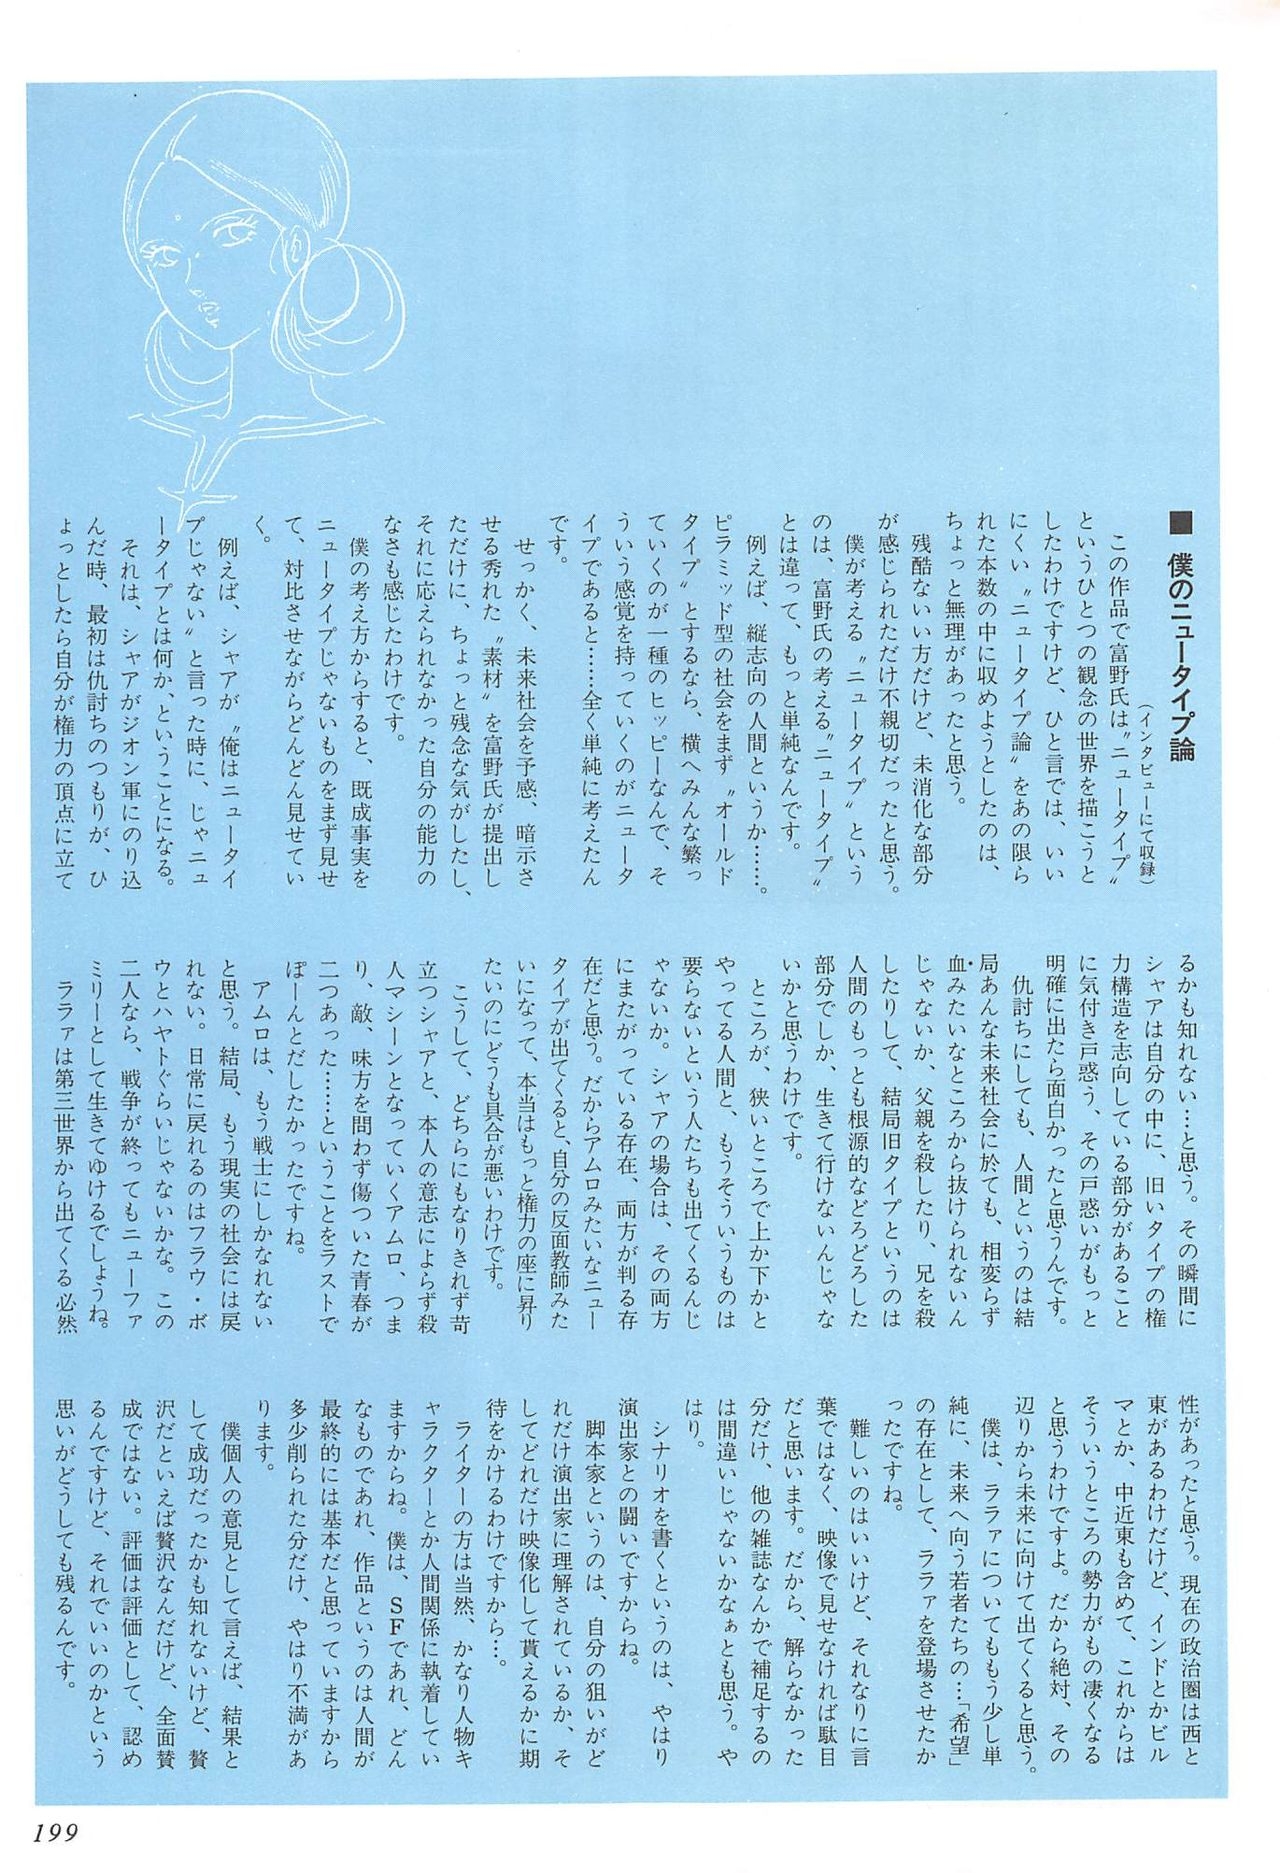 ■ 僕のニュータイプ論
（インタビューにて収録）
この作品で富野氏は〝ニュータイプ〟
というひとつの観念の世界を描こうと
したわけですけど、ひと言では、いい
にくい〝ニュータイプ論〟をあの限ら
れた本数の中に収めようとしたのは、
ちょっと無理があったと思う。
残酷ないい方だけど、未消化な部分
が感じられただけ不親切だったと思う。
僕が考える〝ニュータイプ〟という
のは、富野氏の考える〝ニュータイプ〟
とは違って、もっと単純なんです。
例えば、縦志向の人間というか……。
ピラミッド型の社会をまず〝オールド
タイプ〟とするなら、横へみんな繋っ
ていくのが一種のヒッピーなんで、そ
ういう感覚を持っていくのがニュータ
イプであると……全く単純に考えたん
です。
せっかく、未来社会を予感、暗示さ
せる秀れた〝素材〟を富野氏が提出し
ただけに、ちょっと残念な気がしたし、
それに応えられなかった自分の能力の
なさも感じたわけです。
僕の考え方からすると、既成事実を
ニュータイプじゃないものをまず見せ
て、対比させながらどんどん見せてい
く。
例えば、シャアが〝俺はニュータイ
プじゃない〟と言った時に、じゃニュ
ータイプとは何か、ということになる。
それは、シャアがジオン軍にのり込
んだ時、最初は仇討ちのつもりが、ひ
ょっとしたら自分が権力の頂点に立て
るかも知れない…と思う。その瞬間に
シャアは自分の中に、旧いタイプの権
力構造を志向している部分があること
に気付き戸惑う、その戸惑いがもっと
明確に出たら面白かったと思うんです。
仇討ちにしても、人間というのは結
局あんな未来社会に於ても、相変らず
血みたいなところから抜けられないん
じゃないか、父親を殺したり、兄を殺
したりして、結局旧タイプというのは
人間のもっとも根源的などろどろした
部分でしか、生きて行けないんじゃな
いかと思うわけです。
ところが、狭いところで上か下かと
やってる人間と、もうそういうものは
要らないという人たちも出てくるんじ
ゃないか。シャアの場合は、その両方
にまたがっている存在、両方が判る存
在だと思う。だからアムロみたいなニュー
タイプが出てくると、自分の反面教師みた
いになって、本当はもっと権力の座に昇り
たいのにどうも具合が悪いわけです。
こうして、どちらにもなりきれず苛
立つシャアと、本人の意志によらず殺
人マシーンとなっていくアムロ、つま
り、敵、味方を問わず傷ついた青春が
二つあった……ということをラストで
ぽーんとだしたかったですね。
アムロは、もう戦士にしかなれない
と思う。結局、もう現実の社会には戻
れない。日常に戻れるのはフラウ・ボ
ウとハヤトぐらいじゃないかな。この
二人なら、戦争が終ってもニューファ
ミリーとして生きてゆけるでしょうね。
ララァは第三世界から出てくる必然
性があったと思う。現在の政治圏は西と
東があるわけだけど、インドとかビル
マとか、中近東も含めて、これからは
そういうところの勢力がもの凄くなる
と思うわけですよ。だから絶対、その
辺りから未来に向けて出てくると思う。
僕は、ララァについてももう少し単
純に、未来へ向う若者たちの…「希望」
の存在として、ララァを登場させたか
ったですね。
難しいのはいいけど、それなりに言
葉ではなく、映像で見せなければ駄目
だと思います。だから、解らなかった
分だけ、他の雑誌なんかで補足するの
は間違いじゃないかなぁとも思う。や
はり。
シナリオを書くというのは、やはり
演出家との闘いですからね。
脚本家というのは、自分の狙いがど
れだけ演出家に理解されているか、そ
してどれだけ映像化して貰えるかに期
待をかけるわけですから…。
ライターの方は当然、かなり人物キ
ャラクターとか人間関係に執着してい
ますからね。僕は、SFであれ、どん
なものであれ、作品というのは人間が
最終的には基本だと思っていますから
多少削られた分だけ、やはり不満があ
ります。
僕個人の意見として言えば、結果と
して成功だったかも知れないけど、贅
沢だといえば贅沢なんだけど、全面賛
成ではない。評価は評価として、認め
るんですけど、それでいいのかという
思いがどうしても残るんです。
199